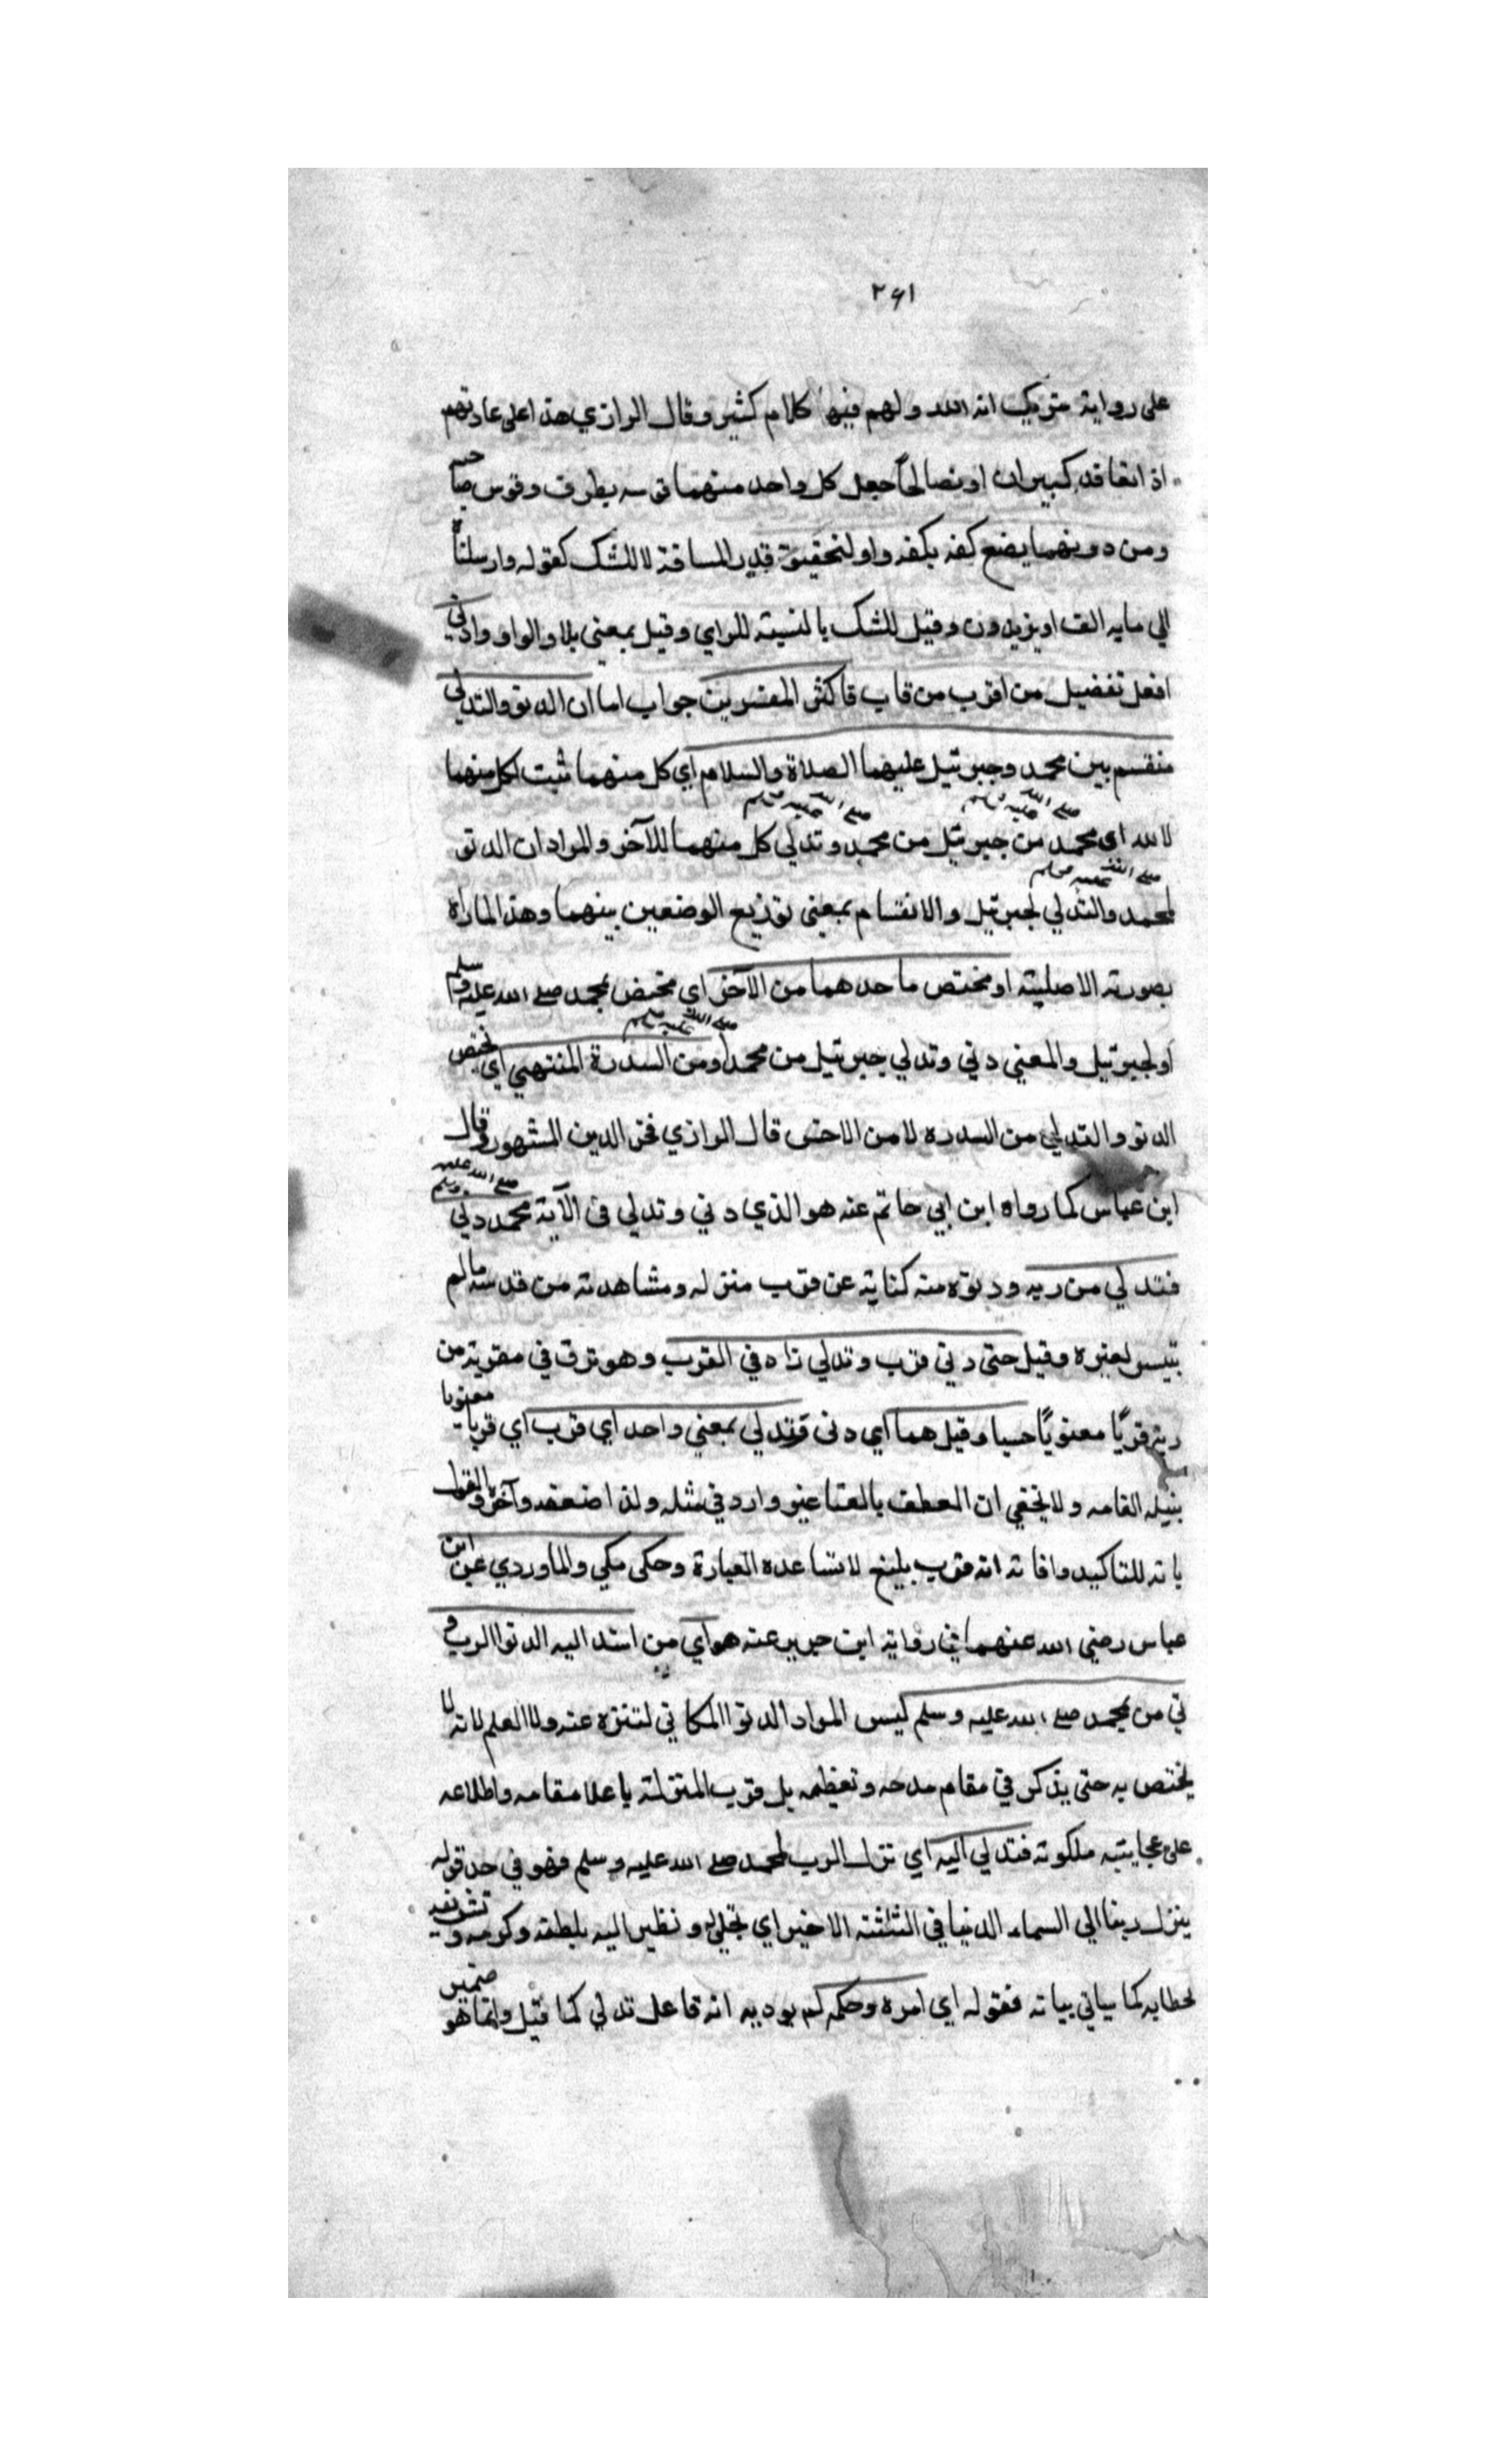 ٢٩١
على رواية شريك انه الله ولهم فيها كلام كثير وقال الرازي هذا على عادتهم
اذ اتعاقد كبيران او تصالحا جعل كل واحد منهما قوسه بطرف وقوس صاحبه
ومن دونهما يضع كفه بكفه واو لتحقيق قدر المسافة لا للشك كقوله وارسلناه
الي مايه الف او يزيدون وقيل للشك بالنسبة للراي وقيل بمعنى بل او الواو وادني
افعل تفضيل من اقرب من قاب فاكثر المفسرين جواب اما ان الدنو والتدلي
منقسم بين محمد وجبرئيل عليهما الصلاة والسلام اي كل منهما ثبت لكل منهما
لانه اى محمد صلى الله عليه وسلم من جبرئيل من محمد صلى الله عليه وسلم وتدلي كل منهما للآخر والمراد ان الدنو
لمحمد صلى الله عليه وسلم والتدلي لجبرئيل والانقسام بمعنى توزيع الوضعين بينهما وهذا لما رآه
بصورته الاصلية او مختص باحدهما من الآخر اي مختص بمحمد صلى الله عليه وسلم
او لجبرئيل والمعني دني وتدلي جبرئيل من محمد صلى الله عليه وسلم او من السدرة المنتهي اي يختص
الدنو والتدلي من السدره لا من الاخر قال الرازي فخر الدين المشهور وقال
ابن عباس كما رواه ابن ابي حاتم عنه هو الذي دني وتدلي فى الآية محمد صلى الله عليه وسلم دني
فتدلي من ربه ودنوه منه كناية عن قرب منزله ومشاهدته من قدسه مالم
يتيسر لغيره وقيل حتى دني قرب وتدلي زاد في القرب وهو ترق في مقربة من
ربه قربًا معنويًا حسيا وقيل هما اي دنى فتدلي بمعني واحد اي قرب اي قربا معنويا
بنيله القامه ولا يخفي ان العطف بالفاء غير وارد في مثله ولذا ضعفه وآخر والقول
بانه للتاكيد وافاته انه قرب بليغ لا تساعده العبارة وحكى مكي والماوردي عن ابن
عباس رضي الله عنهما في رواية ابن جرير عنه هو اي من اسند اليه الدنو الرب
دني من محمد صلى الله عليه وسلم ليس المراد الدنو المكاني لتنزه عنه ولا العلم لانه لا
يختص به حتى يذكر في مقام مدحه وتعظيمه بل قرب المنزلة باعلا مقامه واطلاعه
على عجايبه ملكوته فتدلي اليه اي نزل الرب لمحمد صلى الله عليه وسلم فهو في حد قوله
ينزل ربنا الي السماء الدنيا في الثلثة الاخير اي تجلي له ونظير اليه بلطفه وكرمه وتشريفه
لخطابه كما سياتي بيانه فقوله اي امره وحكمه لم يرد به انه فاعل تدلي كما قيل وانما هو ضمير